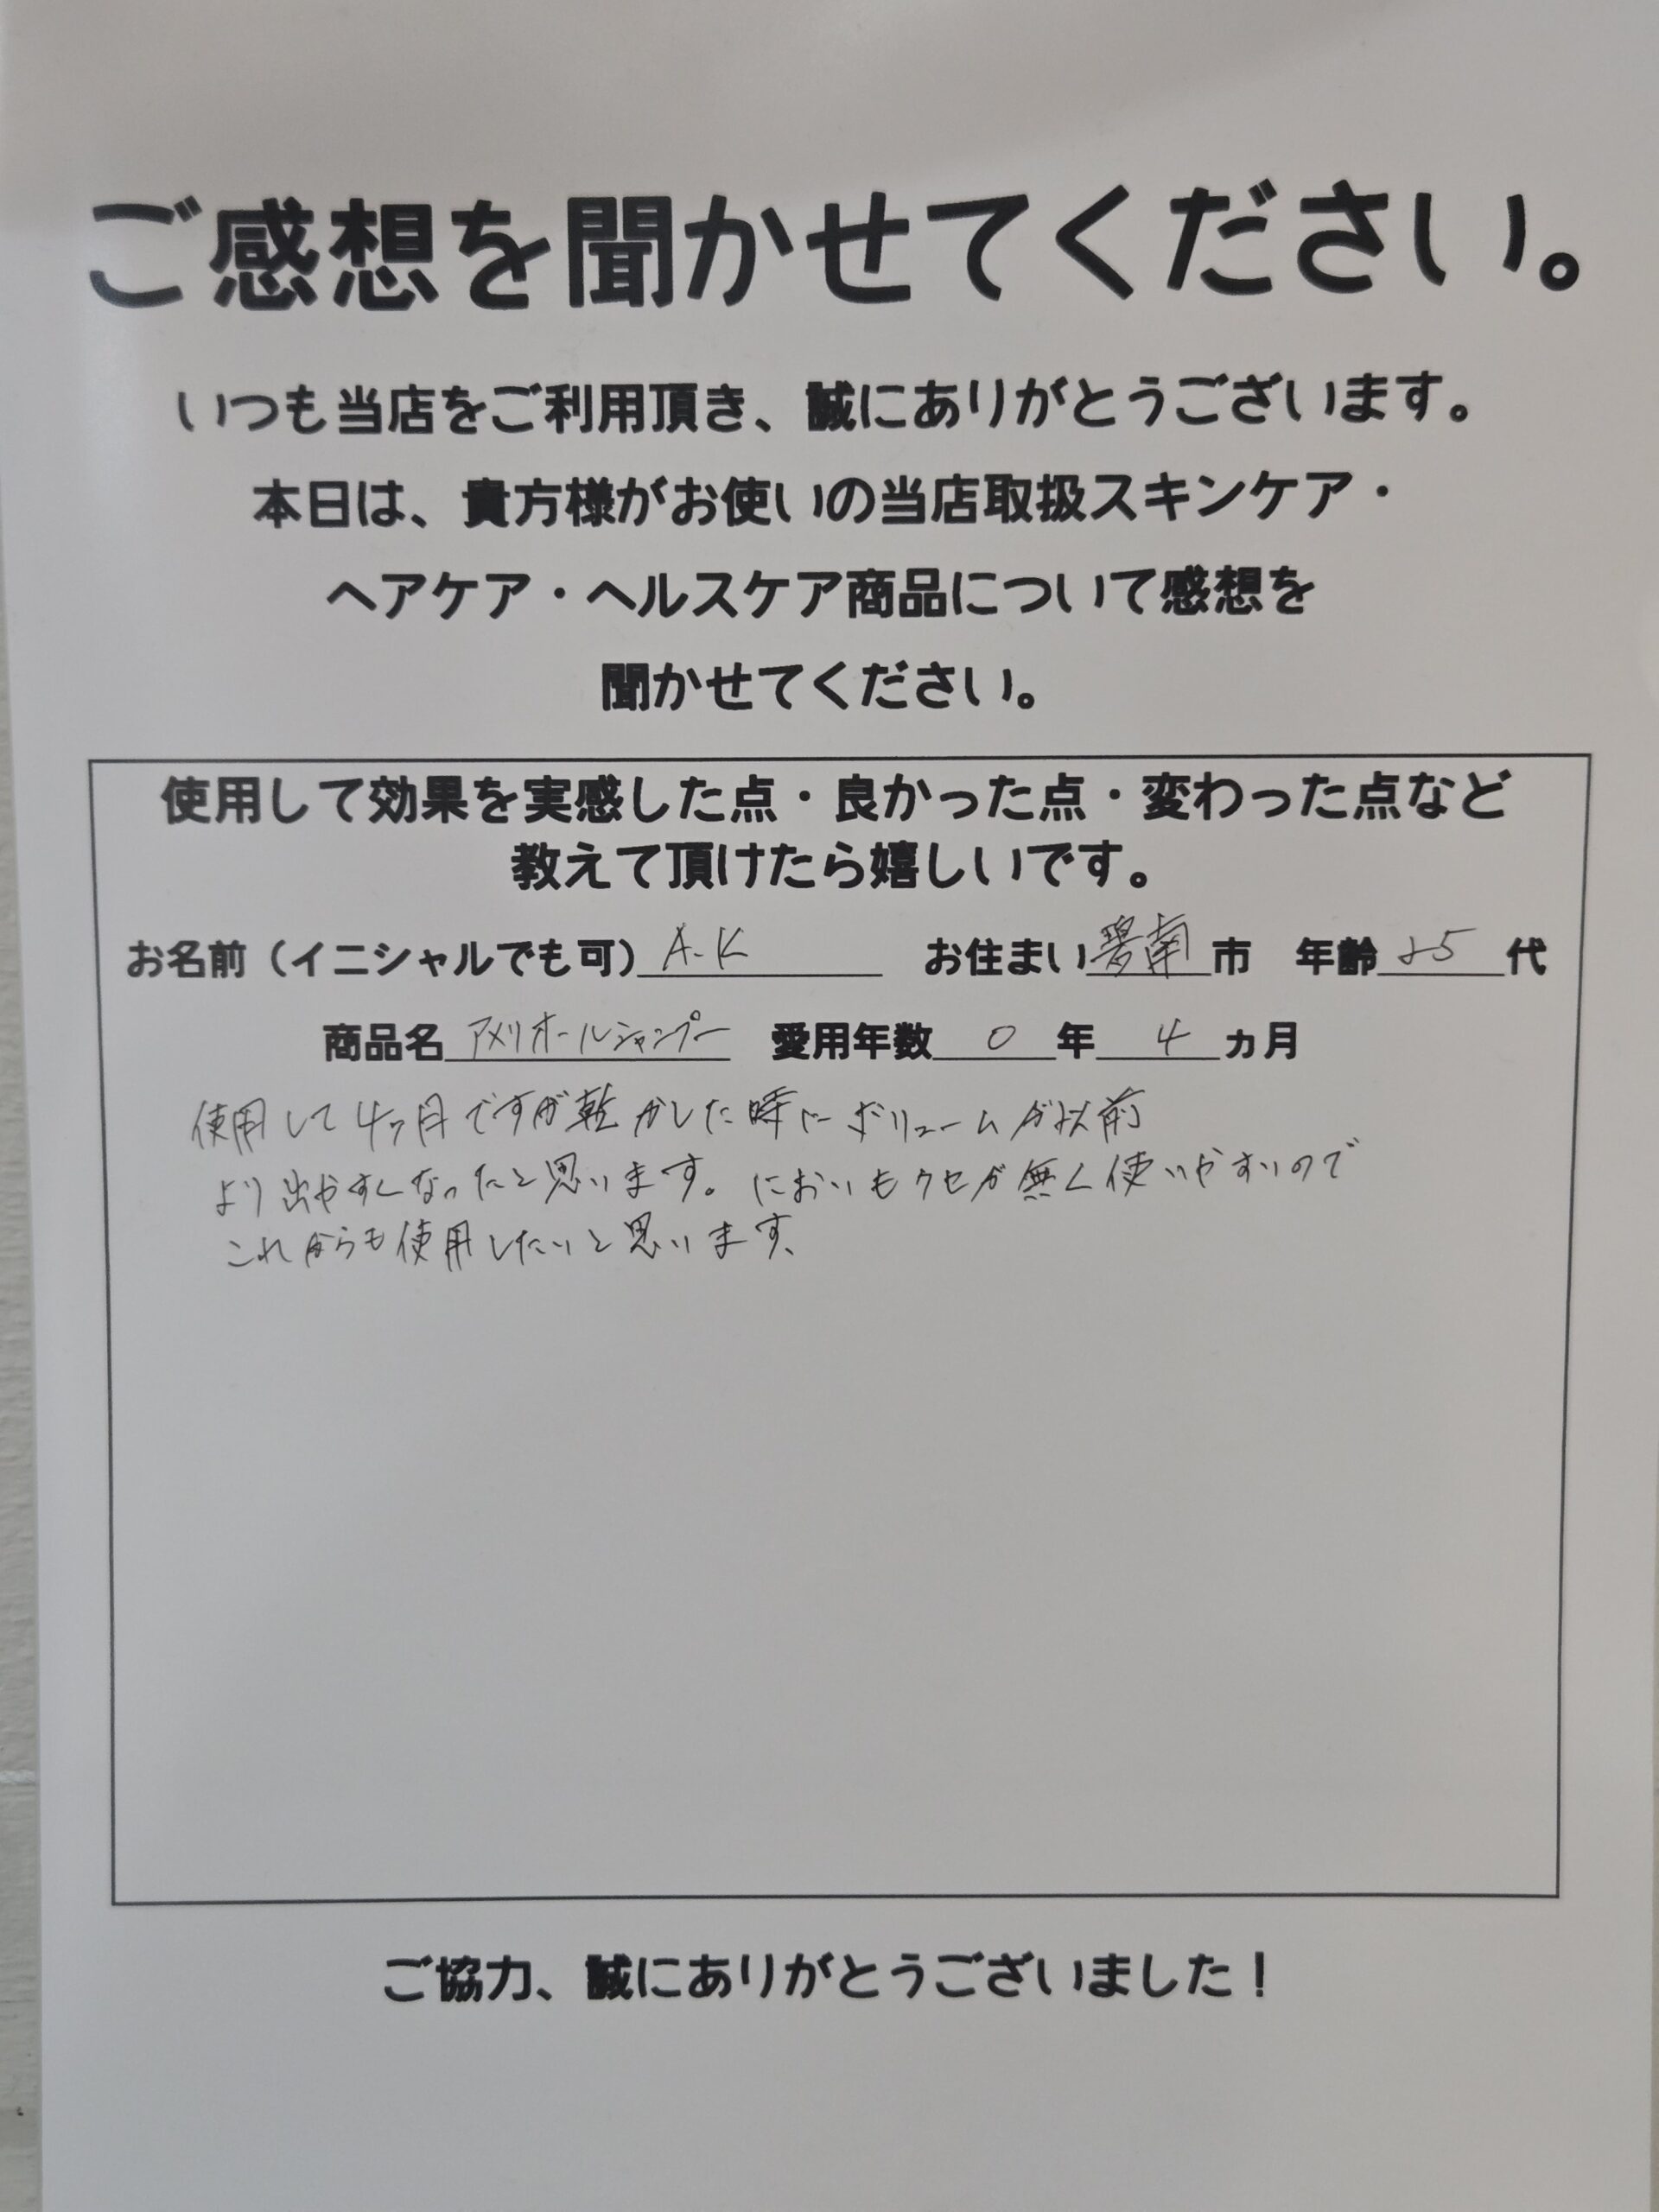 ご感想を聞かせてください。
いつも当店をご利用頂き、誠にありがとうございます。
本日は、貴方様がお使いの当店取扱スキンケア・
ヘアケア・ヘルスケア商品について感想を
聞かせてください。
使用して効果を実感した点・良かった点・変わった点など
教えて頂けたら嬉しいです。
お名前（イニシャルでも可）A.K お住まい碧南市 年齢25代
商品名 アメリオールシャンプー 愛用年数 0 年 4 ヵ月
使用して4ヶ月ですが乾かした時にボリュームが以前
より出やすくなったと思います。においもクセが無く使いやすいので
これからも使用したいと思います、
ご協力、誠にありがとうございました！